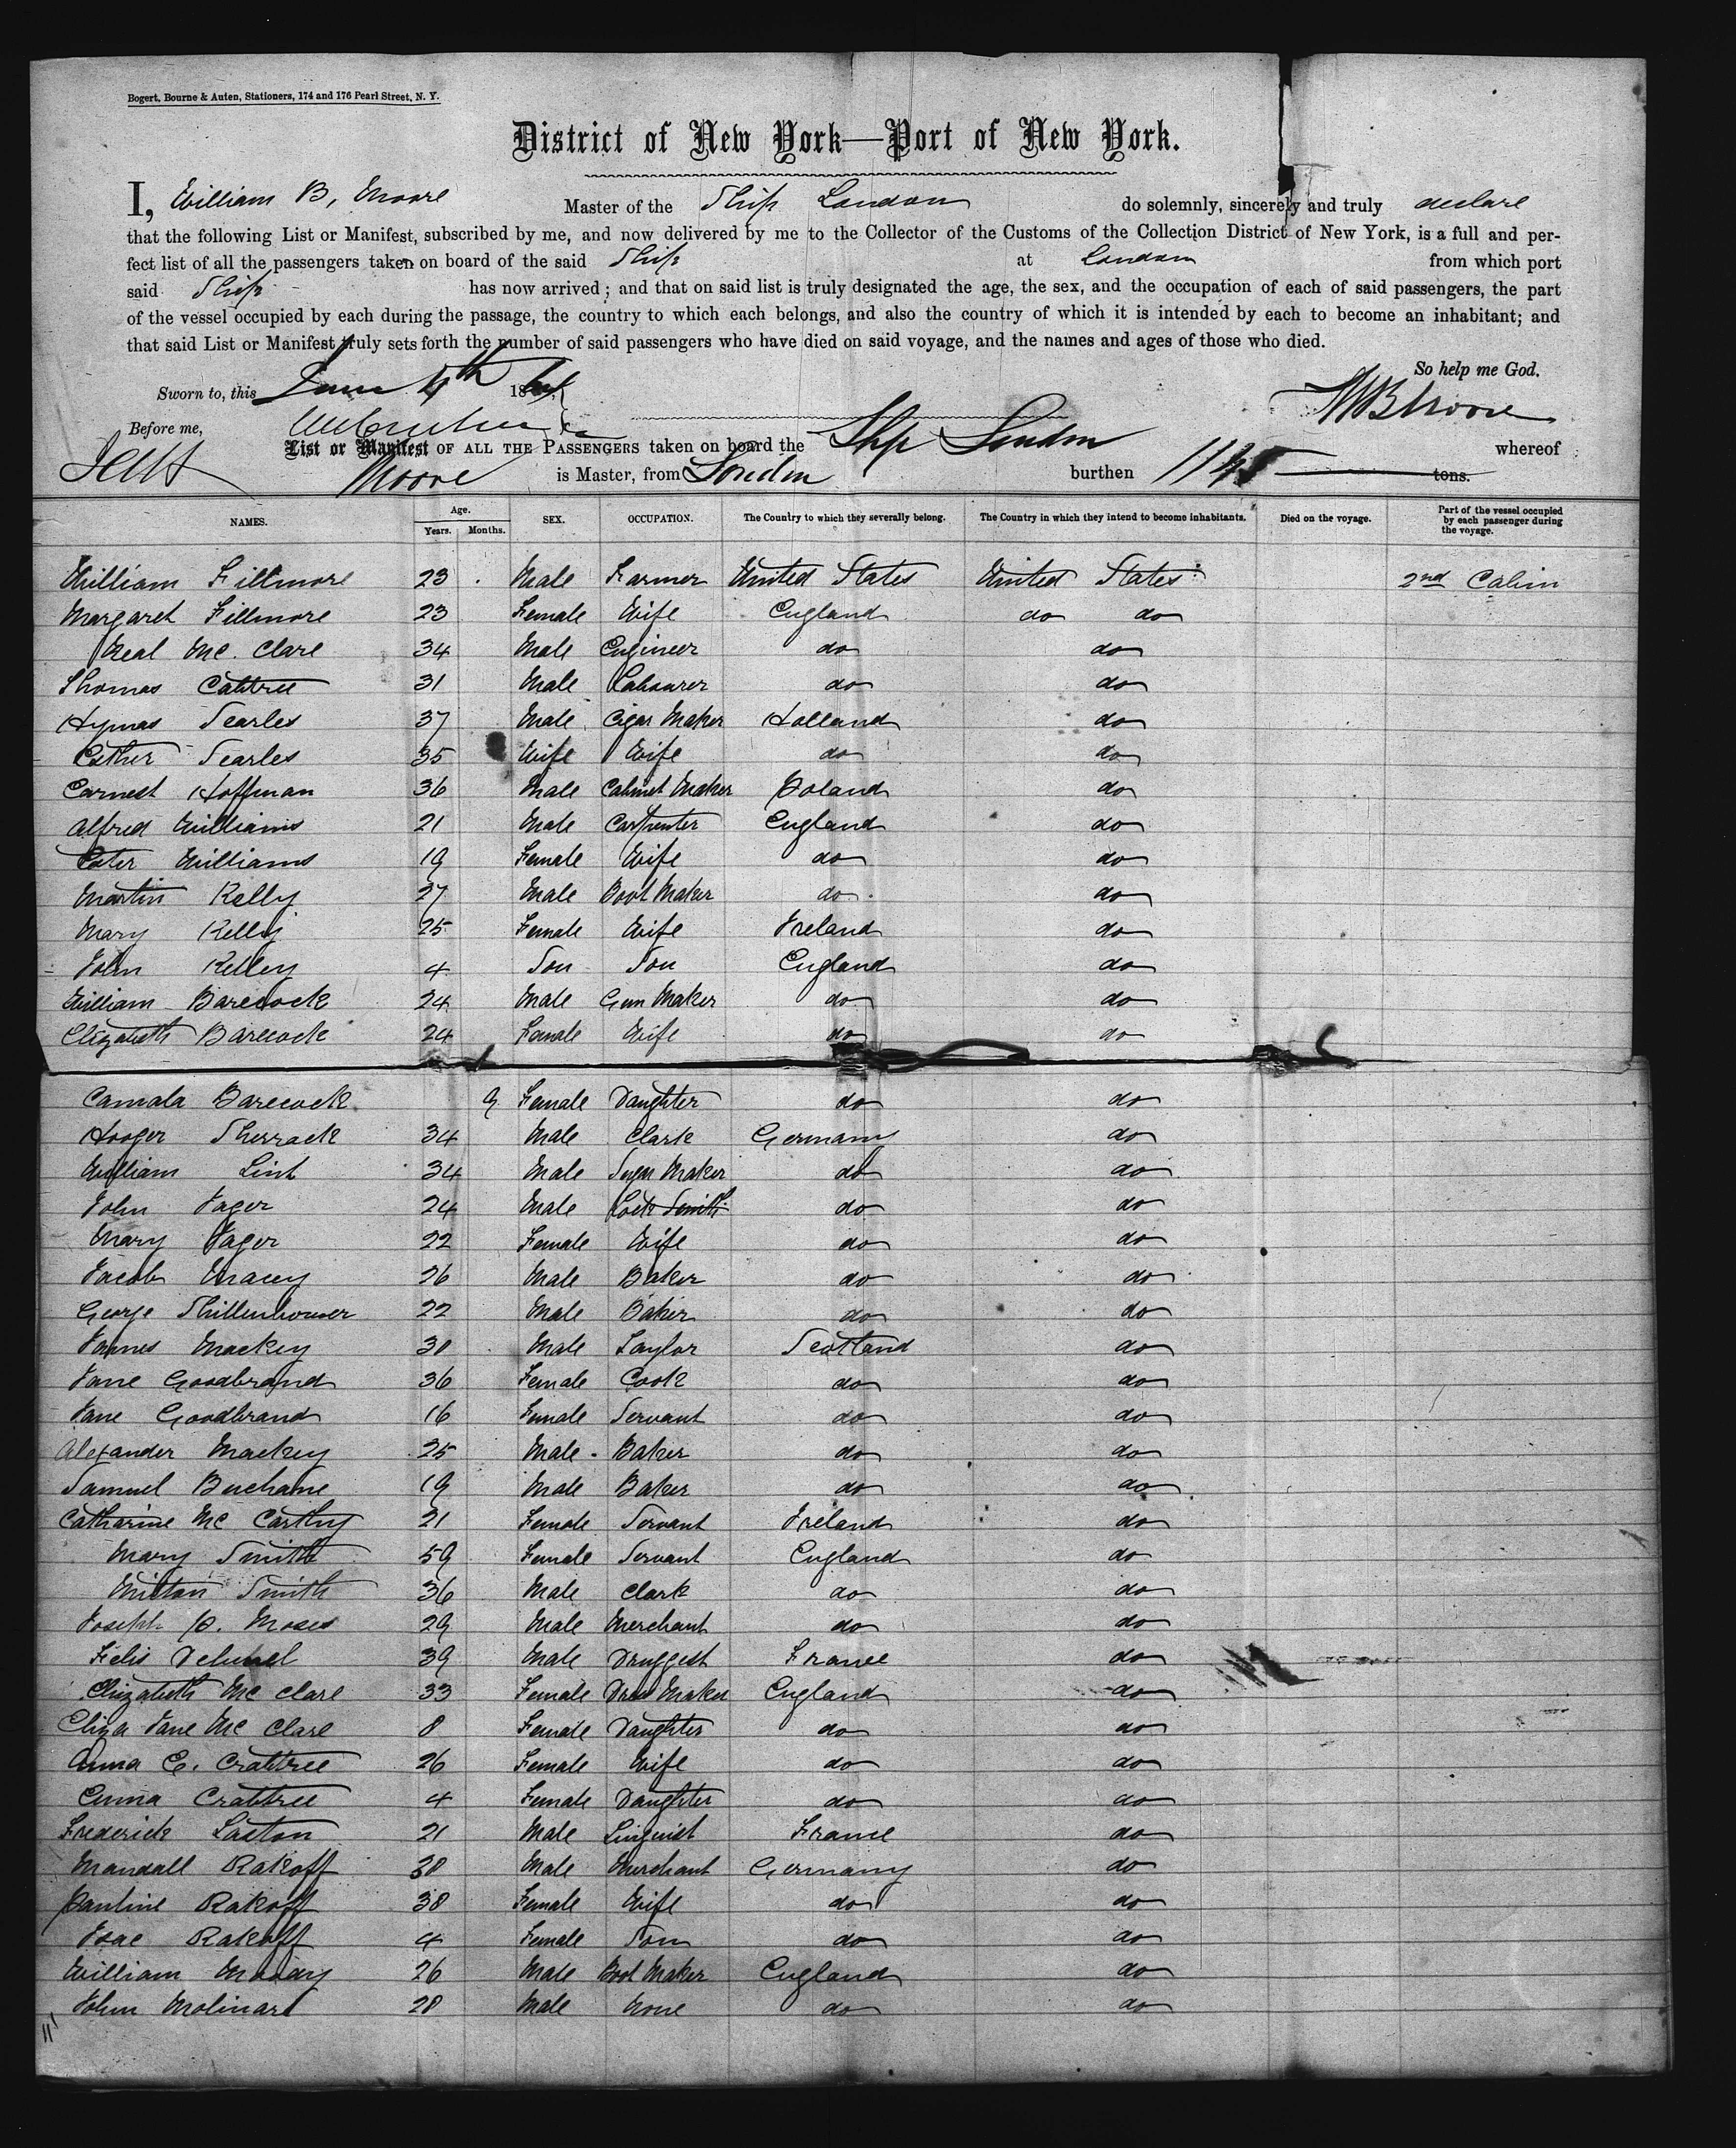 Bogert, Bourne & Auten, Stationers, 174 and 176 Pearl Street, N. Y.
District of New York—Port of New York.
I, William B, Moore Master of the Ship London do solemnly, sincerely and truly declare
that the following List or Manifest, subscribed by me, and now delivered by me to the Collector of the Customs of the Collection District of New York, is a full and per-
fect list of all the passengers taken on board of the said Ship at London from which port
said Ship has now arrived; and that on said list is truly designated the age, the sex, and the occupation of each of said passengers, the part
of the vessel occupied by each during the passage, the country to which each belongs, and also the country of which it is intended by each to become an inhabitant; and
that said List or Manifest truly sets forth the number of said passengers who have died on said voyage, and the names and ages of those who died.
So help me God.
Sworn to, this June 4th 1864 WB Moore
Before me,
List or Manifest OF ALL THE PASSENGERS taken on board the Ship London whereof
Moore is Master, from London burthen 1145 tons.
NAMES. Age. Years. Months. SEX. OCCUPATION. The Country to which they severally belong. The Country in which they intend to become inhabitants. Died on the voyage. Part of the vessel occupied by each passenger during the voyage.
William Fillmore 23 Male Farmer United States United States 2nd Cabin
Margaret Fillmore 23 Female Wife England do do
Neal Mc. Clare 34 Male Engineer do do
Thomas Cabtree 31 Male Labourer do do
Hymas Searles 37 Male Cigar Maker Holland do
Esther Searles 35 Wife Wife do do
Earnest Hoffman 36 Male Cabinet Maker Poland do
Alfred Williams 21 Male Carpenter England do
Ester Williams 19 Female Wife do do
Martin Kelly 27 Male Boot Maker do do
Mary Kelly 25 Female Wife Ireland do
John Kelley 4 Son Son England do
William Barecock 24 Male Gun Maker do do
Elizabeth Barecock 24 Female Wife do do
Camala Barecock 9 Female Daughter do do
Hooger Sherrack 34 Male Clark Germany do
William Lint 34 Male Sugar Maker do do
John Jager 24 Male Lock Smith do do
Mary Jager 22 Female Wife do do
Jacob Macey 26 Male Baker do do
George Shillenhower 22 Male Baker do do
James Mackey 30 Male Taylor Scotland do
Jane Goodbrand 36 Female Cook do do
Jane Goodbrand 16 Female Servant do do
Alexander Mackey 25 Male Baker do do
Samuel Buchane 19 Male Baker do do
Catharine Mc Carthy 21 Female Servant Ireland do
Mary Smith 59 Female Servant England do
Milton Smith 36 Male Clark do do
Joseph P. Moses 29 Male Merchant do do
Felis 39 Male Druggest France do
Elizabeth Mc Clare 33 Female Dress Maker England do
Eliza Jane Mc Clare 8 Female Daughter do do
Anna E. Crabtree 26 Female Wife do do
Emma Crabtree 4 Female Daughter do do
Frederick Laxton 21 Male Linguist France do
Mandall Rakoff 38 Male Merchant Germany do
Pauline Rakoff 38 Female Wife do do
Isac Rakoff 4 Female Son do do
William Moody 26 Male Boot Maker England do
John Molinari 28 Male None do do